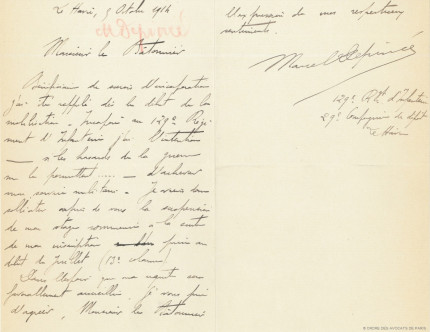 Le Havre, 5 Octobre 1914
Monsieur le Bâtonnier
j'ai été rappelé dès le début de la
mobilisation. Incorporé au 129e Régi-
ment d'Infanterie j'ai l'intention
— si les hasards de la guerre
me le permettent..... — d'achever
mon service militaire. Je viens vous
solliciter auprès de vous la suspension
de mon stage commencé à la suite
de mon inscription prise au
début de Juillet (12e colonne)
Dans l'espoir que ma requête sera
favorablement accueillie, je vous prie
d'agréer, Monsieur le Bâtonnier
l'expression de mes respectueux
sentiments.
Marcel
129e Rgt d'Infanterie
29e Compagnie de dépôt
Le Havre
© ORDRE DES AVOCATS DE PARIS